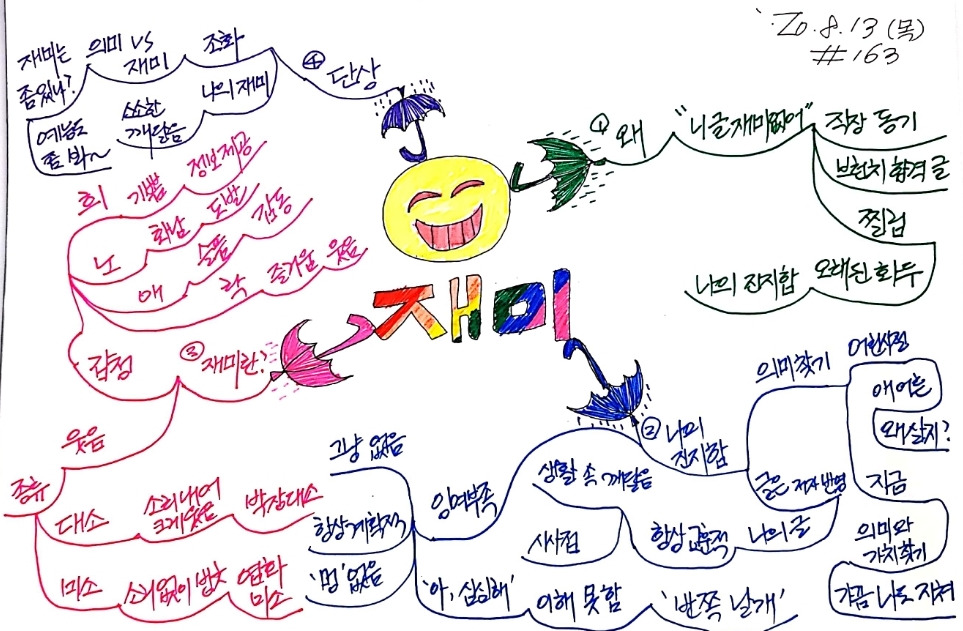 '20.8.13 (목)
#163
재미
① 왜
"니 글 재미없어"
직장 동기
브런치 합격 글
찔림
오래된 화두
나의 진지함
② 나의 진지함
의미 찾기
어린시절
애어른
왜 살지?
지금
의미와 가치 찾기
가끔 나도 지쳐
글은 저자 반영
나의 글
항상 교훈적
생활 속 깨달음
시사점
잉여부족
그냥 없음
항상 계획적
'멍' 없음
'아, 심심해'
이해 못함
'반쪽 날개'
③ 재미란?
감정
희
기쁨
정보제공
노
화남
도발
애
슬픔
감동
락
즐거움
웃음
웃음
종류
대소
소리내어 크게 웃음
박장대소
미소
소리없이 방긋
염화미소
④ 단상
조화
의미 VS 재미
재미는 좀 있나?
나의 재미
소소한 깨달음
예능도 좀 봐~